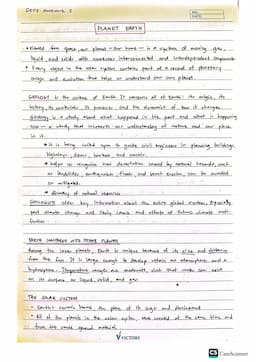 NO.
DATE:
PLANET EARTH
Viewed from space, our planet - our home - is a system of moving gas,
liquid, and solids with numerous interconnected and interdependent components.
Every object in the solar system contains part of a record of planetary
origin and evolution that helps us understand our own planet.
GEOLOGY is the science of Earth. It concerns all of Earth: its origin, its
history, its materials, its processes, and the dynamics of how it changes.
Geology is a study about what happened in the past and what is happening
now - a study that increases our understanding of nature and our place
in it.
It is being relied upon to guide civil engineers in planning buildings,
highways, dams, harbors and canals.
helps us recognize how devastation caused by natural hazards, such
as landslides, earthquakes, floods, and beach erosion, can be avoided
or mitigated.
discovery of natural resources
other key information about the entire global system, especially
past climate change and likely causes and effects of future climate modi-
fication.
EARTH COMPARED WITH OTHER PLANETS
Among the inner planets, Earth is unique because of its size and distance
from the Sun. It is large enough to develop, retain an atmosphere, and a
hydrosphere. Temperature ranges are moderate, such that water can exist
on its surface as liquid, solid, and gas.
THE SOLAR SYSTEM
Earth's cosmic home, the place of its origin and development
All of the planets in the solar system were created at the same time and
from the same general material
VICTORY
CS CamScanner